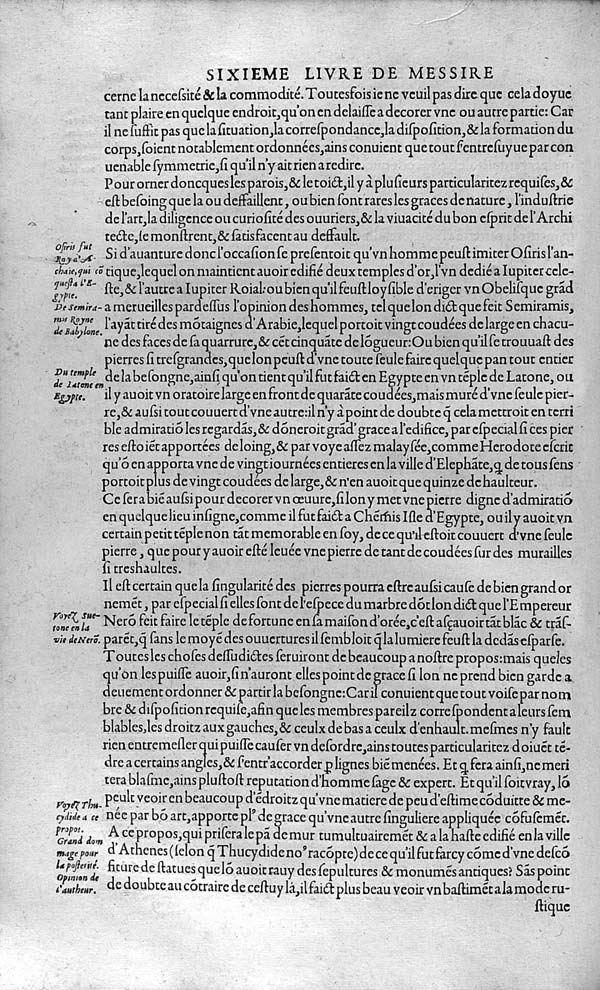 SIXIEME LIVRE DE MESSIRE
cerne la necessité & la commodité. Toutesfois ie ne veuil pas dire que cela doyue
tant plaire en quelque endroit, qu'on en delaisse a decorer vne ou autre partie: Car
il ne suffit pas que la situation, la correspondance, la disposition, & la formation du
corps, soient notablement ordonnées, ains conuient que tout s'entresuyue par con
uenable symmetrie, si qu'il n'y ait rien a redire.
Pour orner doncques les parois, & le toict, il y à plusieurs particularitez requises, &
est besoing que la ou deffaillent, ou bien sont rares les graces de nature, l'industrie
de l'art, la diligence ou curiosité des ouuriers, & la viuacité du bon esprit de l'Archi
tecte, se monstrent, & satisfacent au deffault.
Osiris fut
Roy d'A-
chaie, qui cō
questa l'E-
gypte.
Si d'auanture donc l'occasion se presentoit qu'vn homme peust imiter Osiris l'an-
tique, lequel on maintient auoir edifié deux temples d'or, l'vn dedié a Iupiter cele-
ste, & l'autre a Iupiter Roial: ou bien qu'il feust loysible d'eriger vn Obelisque grād
De Semira-
mis Royne
de Babylone.
a merueilles par dessus l'opinion des hommes, tel que lon dict que feit Semiramis,
l'ayāt tiré des mōtaignes d'Arabie, lequel portoit vingt coudées de large en chacu-
ne des faces de sa quarrure, & cēt cinquāte de lōgueur: Ou bien qu'il se trouuast des
pierres si tresgrandes, que lon peust d'vne toute seule faire quelque pan tout entier
Du temple
de Latone en
Egypte.
de la besongne, ainsi qu'on tient qu'il fut faict en Egypte en vn tēple de Latone, ou
il y auoit vn oratoire large en front de quarāte coudées, mais muré d'vne seule pier-
re, & aussi tout couuert d'vne autre: il n'y à point de doubte q̄ cela mettroit en terri
ble admiratiō les regardās, & dōneroit grād' grace a l'edifice, par especial si ces pier
res estoiēt apportées de loing, & par voye assez malaysée, comme Herodote escrit
qu'ō en apporta vne de vingt iournées entieres en la ville d'Elephāte, q̄ de tous sens
portoit plus de vingt coudées de large, & n'en auoit que quinze de haulteur.
Ce sera biē aussi pour decorer vn œuure, si lon y met vne pierre digne d'admiratiō
en quelque lieu insigne, comme il fut faict a Chēmis Isle d'Egypte, ou il y auoit vn
certain petit tēple non tāt memorable en soy, de ce qu'il estoit couuert d'vne seule
pierre, que pour y auoir esté leuée vne pierre de tant de coudées sur des murailles
si treshaultes.
Il est certain que la singularité des pierres pourra estre aussi cause de bien grand or
nemēt, par especial si elles sont de l'espece du marbre dōt lon dict que l'Empereur
Voyez Sue-
tone en la
vie de Nerō.
Nerō feit faire le tēple de fortune en sa maison d'orée, c'est asçauoir tāt blāc & trās-
parēt, q̄ sans le moyē des ouuertures il sembloit q̄ la lumiere feust la dedās esparse.
Toutes les choses dessudictes seruiront de beaucoup a nostre propos: mais queles
qu'on les puisse auoir, si n'auront elles point de grace si lon ne prend bien garde a
deuement ordonner & partir la besongne: Car il conuient que tout voise par nom
bre & disposition requise, afin que les membres pareilz correspondent a leurs sem
blables, les droitz aux gauches, & ceulx de bas a ceulx d'enhault. mesmes n'y fault
rien entremesler qui puisse causer vn desordre, ains toutes particularitez doiuēt tē-
dre a certains angles, & s'entr'accorder p lignes biē menées. Et q̄ fera ainsi, ne meri
tera blasme, ains plustost reputation d'homme sage & expert. Et qu'il soit vray, lō
Voyez Thu-
cydide a ce
propos.
peult veoir en beaucoup d'ēdroitz qu'vne matiere de peu d'estime cōduitte & me-
née par bō art, apporte plº de grace qu'vne autre singuliere appliquée cōfusemēt.
Grand dom
mage pour
la posterité.
Opinion de
l'autheur.
A ce propos, qui prisera le pā de mur tumultuairemēt & a la haste edifié en la ville
d'Athenes (selon q̄ Thucydide noº racōpte) de ce qu'il fut farcy cōme d'vne descō
fiture de statues que lō auoit rauy des sepultures & monumēs antiques? Sās point
de doubte au cōtraire de cestuy là, il faict plus beau veoir vn bastimēt a la mode ru-
stique